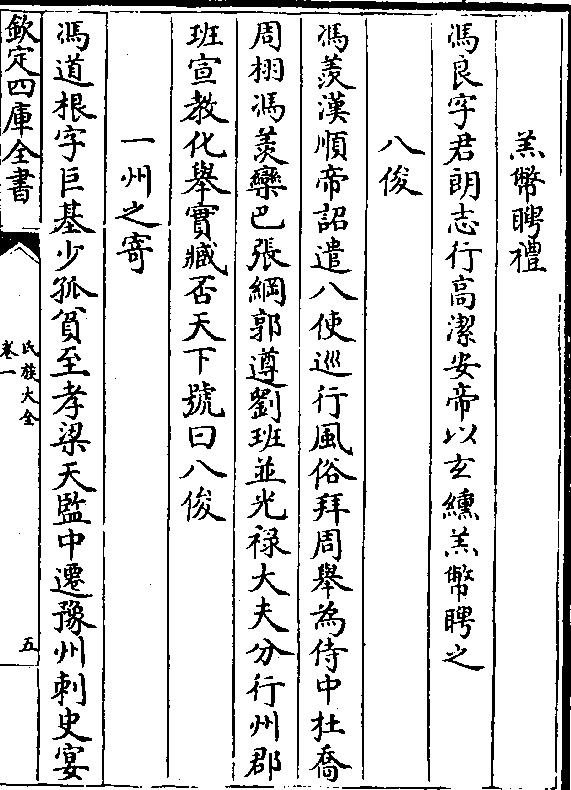 羔幣聘禮
馮良字君朗志行高潔安帝以玄纁羔幣聘之
八俊
馮羡漢順帝詔遣八使巡行風俗拜周舉為侍中杜喬
周栩馮羡欒巴張綱郭遵劉班並光禄大夫分行州郡
班宣教化舉實臧否天下號曰八俊
一州之寄
馮道根字巨基少孤貧至孝梁天監中遷豫州刺史宴
欽定四庫全書
氏族大全
卷一
五